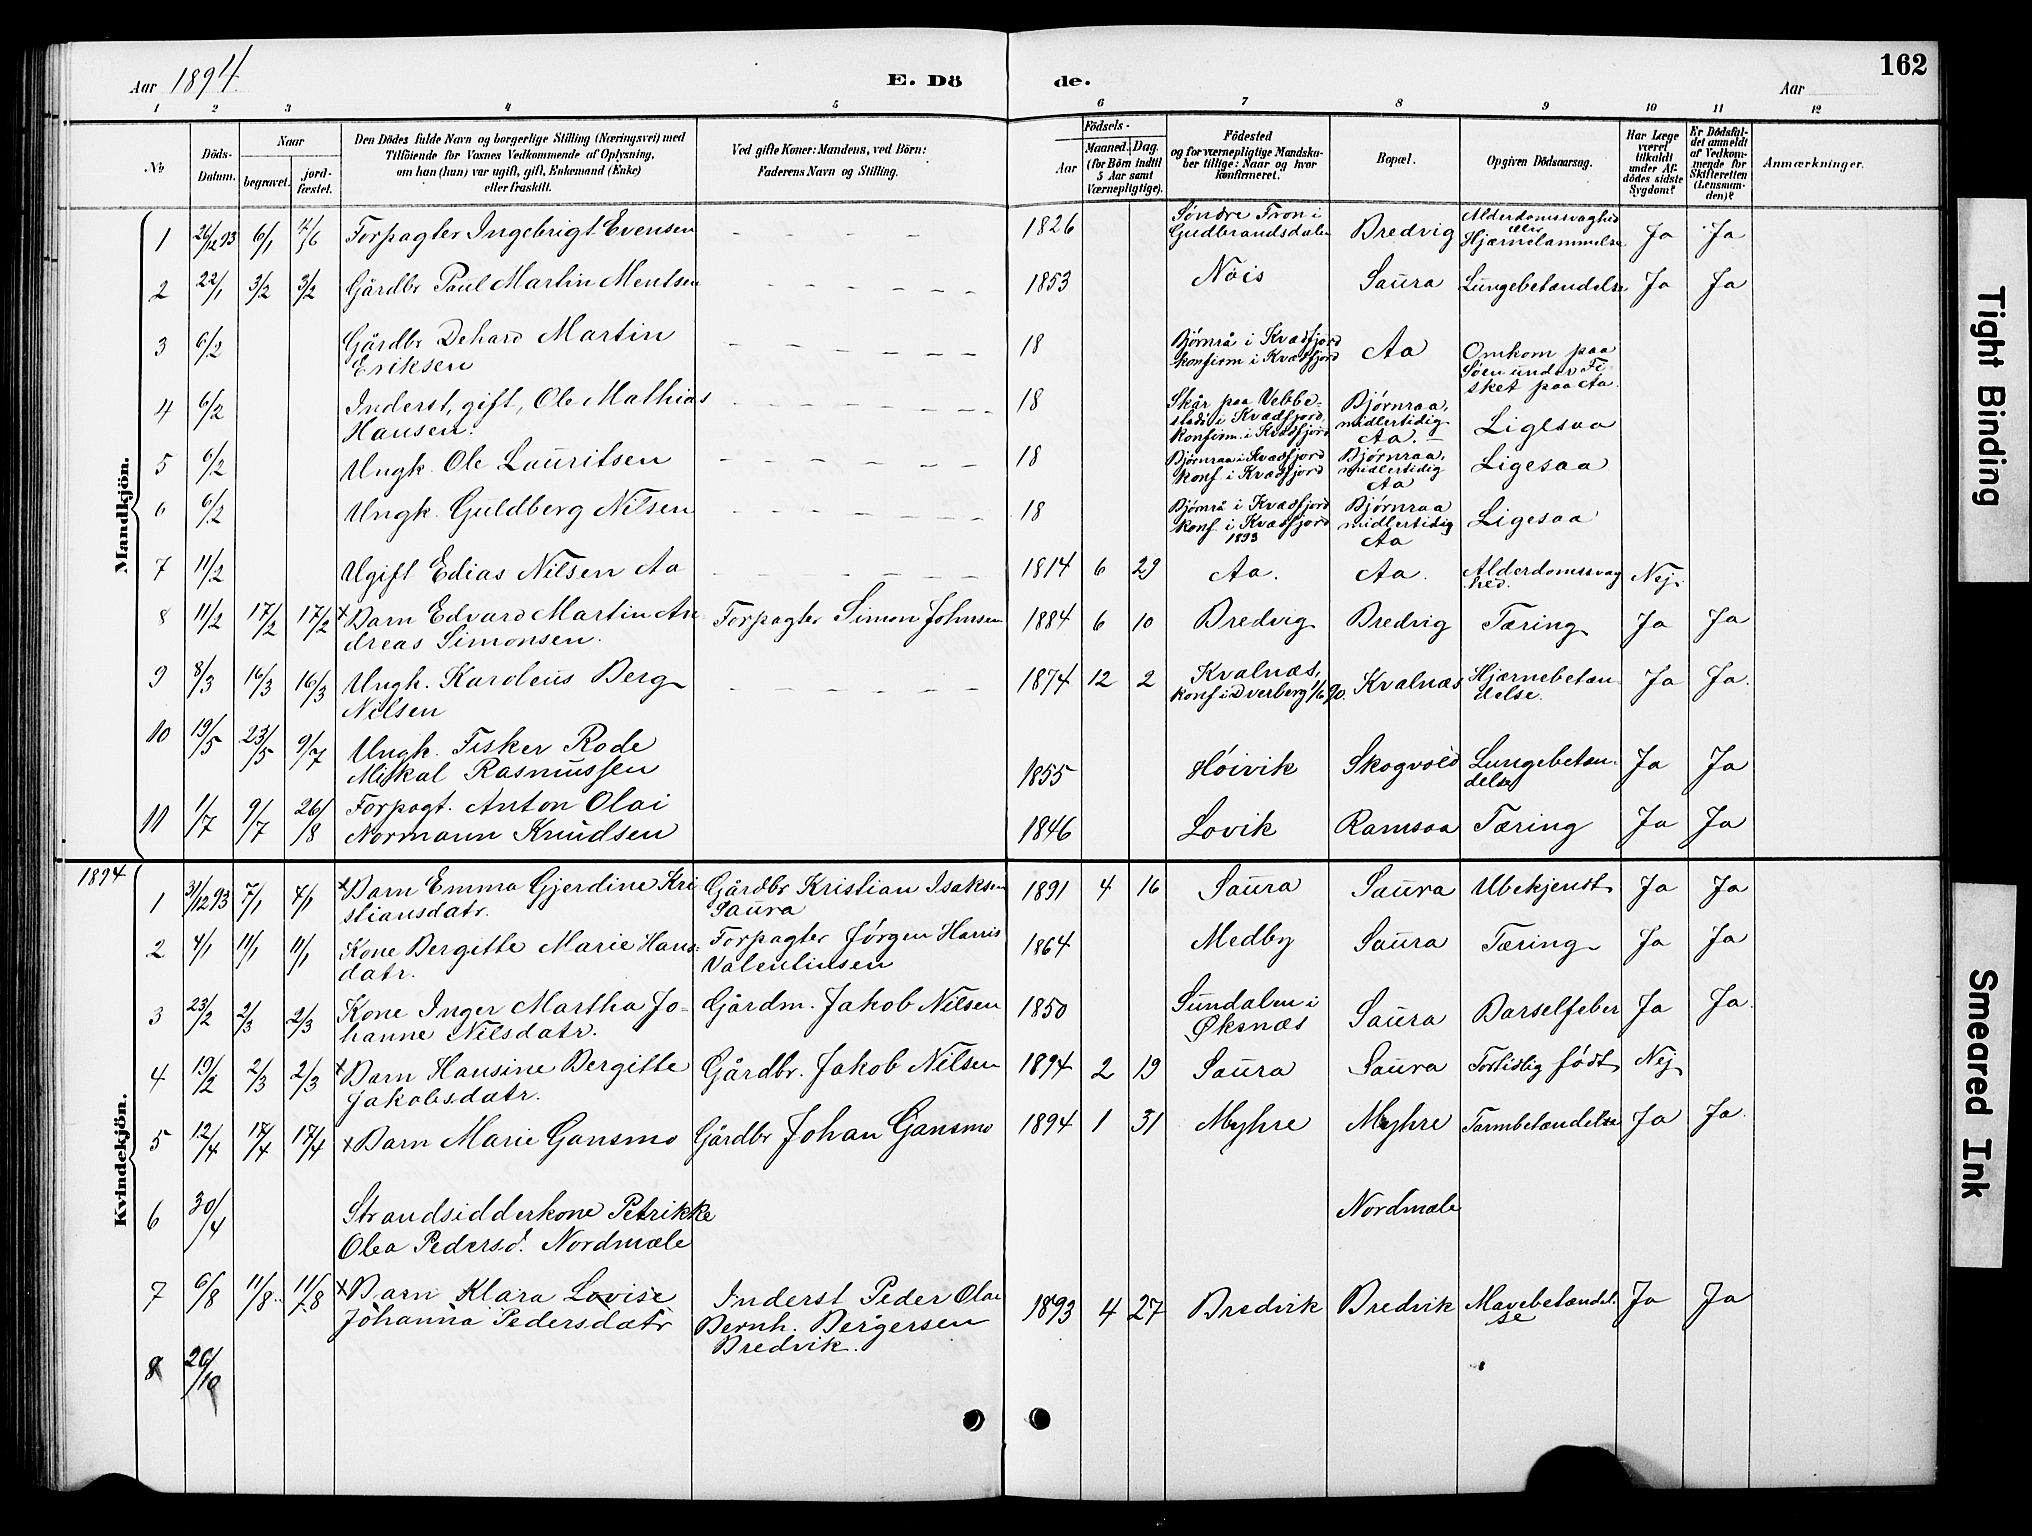 162
Aar 1894. E. Dö de. Aar
1 2 3 4 5 6 7 8 9 10 11 12
No
Döds-Datum.
Naar
begravet.
jord-fæstet.
Den Dödes fulde Navn og borgerlige Stilling (Næringsvei) med
Tilföiende for Voxnes Vedkommende af Oplysning,
om han (hun) var ugift, gift, Enkemand (Enke)
eller fraskilt.
Ved gifte Koner: Mandens, ved Börn:
Faderens Navn og Stilling.
Födsels-
Aar
Maaned.
Dag.
(for Börn indtil
5 Aar samt
Værnepligtige).
Födested
og for værnepligtige Mandska-
ber tillige: Naar og hvor
konfirmeret.
Bopæl.
Opgiven Dödsaarsag.
Har Læge
været
tilkaldt
under Af-
dödes sidste
Sygdom?
Er Dödsfal-
det anmeldt
af Vedkom-
mende for
Skifteretten
(Lensman-
den)?
Anmærkninger.
Mandkjön.
1 26/12 93 6/1 12/6 Forpagter Ingebrigt Evensen - - - - 1826 Søndre Fron i Gudbrandsdalen Bredvig Alderdomssvaghed eller Hjærnelammelse Ja Ja
2 22/1 3/2 3/2 Gårdbr Paul Martin Mentsen - - - - - - 1853 Nöis Saura Lungebetændelse Ja Ja
3 6/2 Gårdbr Dehard Martin
Eriksen - - - - - - 18 Bjørnrå i Kvædfjord
konfirm i Kvædfjord Aa Omkom paa
Søen under Fi-
sket paa Aa.
4 6/2 Inderst, gift, Ole Mathias
Hansen. - - - - - - 18 Skår paa Vebbe-
stad i Kvædfjord
konfirm. i Kvædfjord Bjørnraa,
midlertidig
Aa. - Ligesaa
5 6/2 Ungk. Ole Lauritsen - - - - - - 18 Bjørnraa i Kvædfjord
konf i Kvædfjord Bjørnraa,
midlertidig
Aa Ligesaa
6 6/2 Ungk. Guldberg Nilsen - - - - - - 18 Bjørnrå i Kvædfjord
konf i Kvædfjord
1893 Bjørnraa
midlertidig
Aa Ligesaa
7 11/2 Ugift Edias Nilsen Aa - - - - - - 1814 6 29 Aa. Aa. Alderdomssvag
hed. Nej.
8 11/2 17/2 17/2 x Barn Edvard Martin An-
dreas Simonsen. Forpagter Simon Johnsen 1884 6 10 Bredvig Bredvig Tæring Ja Ja
9 8/3 16/3 16/3 Ungk. Kardeus Berg
Nilsen - - - - - - 1874 12 2 Kvalnæs,
konf i Dverberg 1/6 90. Kvalnæs Hjærnebetæn-
delse. Ja Ja.
10 19/5 23/5 9/7 Ungk. Fisker Rode
Mikal Rasmussen 1855 Høivik Skogvold Lungebetæn-
delse Ja Ja
11 1/7 9/7 26/8 Forpagt. Anton Olai
Normann Knudsen 1846 Lovik Ramsaa Tæring Ja Ja
1894
Kvindekjön.
1 31/12 93 7/1 7/1 x Barn Emma Gjerdine Kri
stiansdatr. Gårdbr Kristian Isaksen
Saura 1891 4 16 Saura Saura Ubekjendt Ja Ja
2 4/1 11/1 11/1 Kone Bergitte Marie Hans-
datr. Forpagter Jørgen Harris
Valentinsen 1864 Medby Saura Tæring Ja Ja
3 23/2 2/3 2/3 Kone Inger Martha Jo-
hanne Nilsdatr. Gårdm. Jakob Nilsen 1850 Sundalen i
Øksnæs Saura Barselfeber Ja Ja.
4 19/2 2/3 2/3 x Barn Hansine Bergitte
Jakobsdatr. Gårdbr. Jakob Nilsen 1894 2 19 Saura Saura Fortidlig født Nej
5 12/4 17/4 17/4 x Barn Marie Gansmo Gårdbr Johan Gansmo 1894 1 31 Myhre Myhre Tarmbetændelse Ja Ja.
6 30/4 Strandsidderkone Petrikke
Olea Pedersd. Nordmæle Nordmæle
7 6/8 11/8 11/8 x Barn Klara Lovise
Johanna Pedersdatr Inderst Peder Olai
Bernh. Bergersen
Bredvik. 1893 4 27 Bredvik Bredvik Mavebetændel-
se Ja Ja
8 26/10
Tight Binding
Smeared Ink